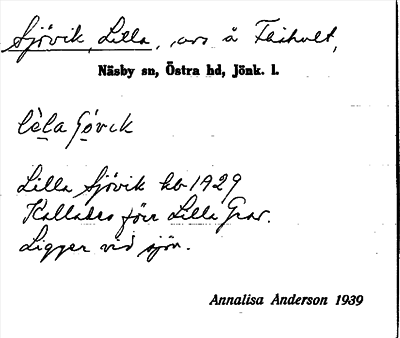 Sjövik, Lilla, avs å Fäihult,
Näsby sn, Östra hd, Jönk. l.
lèla ʃóvik
Lilla Sjövik kb 1929
Kallades förr Lilla Grav.
Ligger vid sjön.
Annalisa Anderson 1939